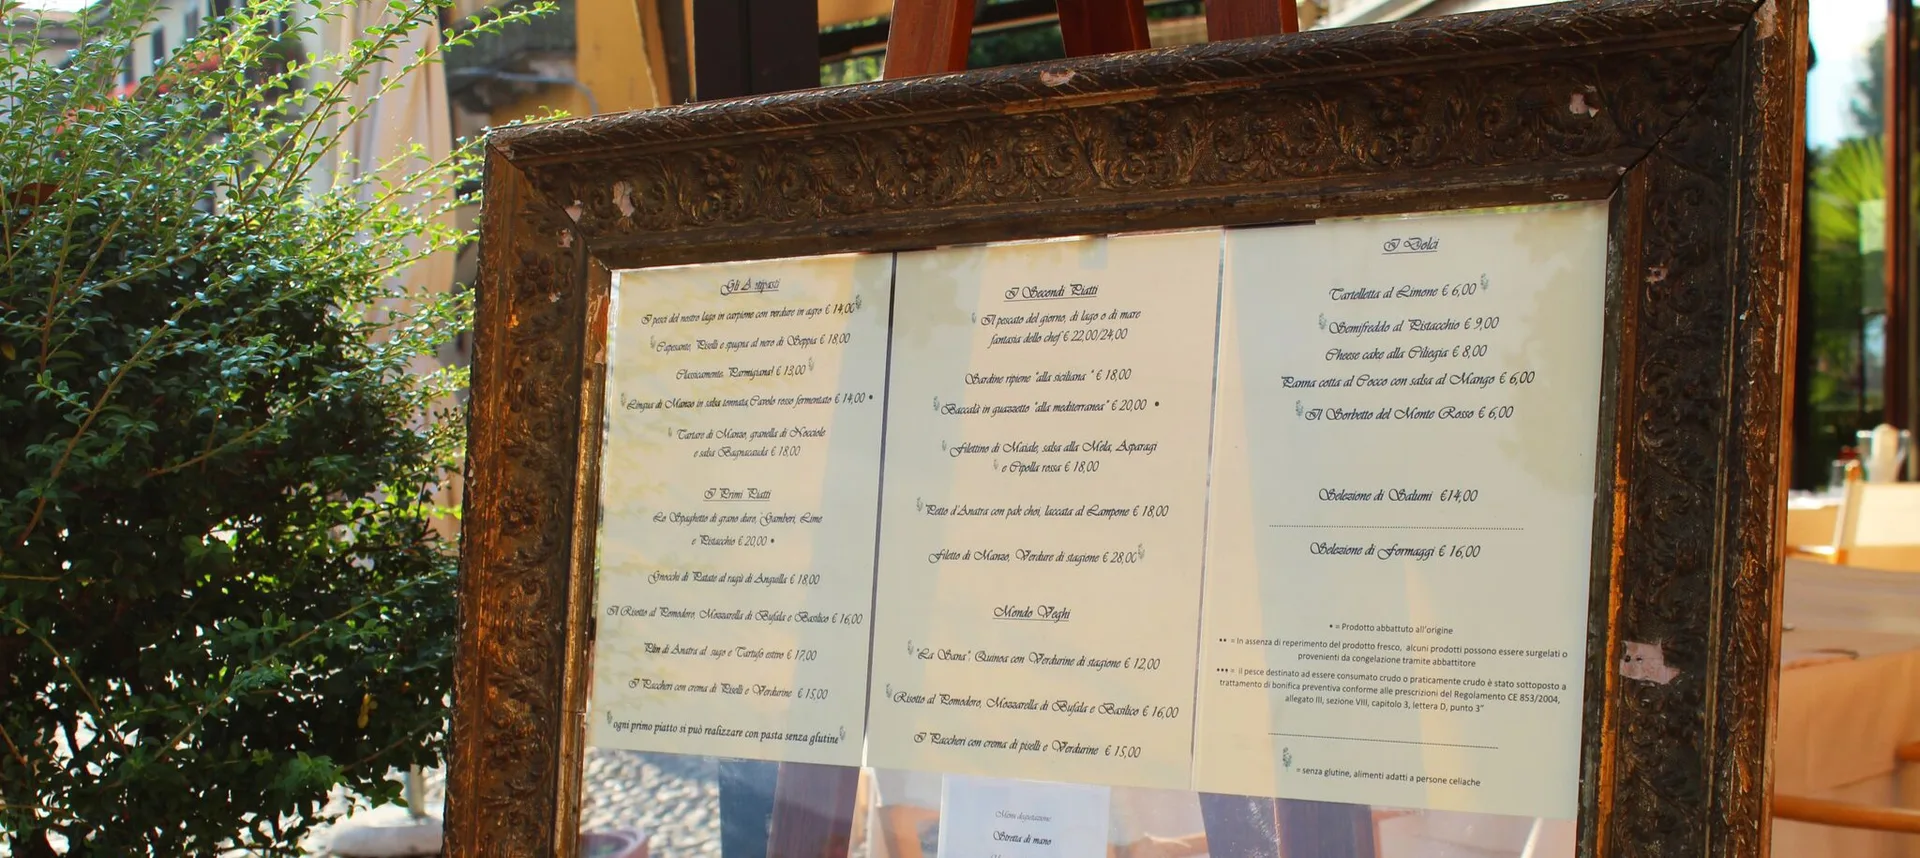 Gli Antipasti
I pesci del nostro lago in carpione con verdure in agro € 14,00
Capesante, Piselli e spugna al nero di Seppia € 18,00
Classicamente, Parmigiana! € 13,00
Lingua di Manzo in salsa tonnata, Cavolo rosso fermentato € 14,00 •
Tartare di Manzo, granella di Nocciole
e salsa Bagnacauda € 18,00
I Primi Piatti
Lo Spaghetto di grano duro, Gamberi, Lime
e Pistacchio € 20,00 •
Gnocchi di Patate al ragù di Anguilla € 18,00
Il Risotto al Pomodoro, Mozzarella di Bufala e Basilico € 16,00
Plin di Anatra al sugo e Tartufo estivo € 17,00
I Paccheri con crema di Piselli e Verdurine € 15,00
ogni primo piatto si può realizzare con pasta senza glutine
I Secondi Piatti
Il pescato del giorno, di lago o di mare
fantasia dello chef € 22,00/24,00
Sardine ripiene "alla siciliana " € 18,00
Baccalà in guazzetto "alla mediterranea" € 20,00 •
Filettino di Maiale, salsa alla Mela, Asparagi
e Cipolla rossa € 18,00
Petto d'Anatra con pak choi, laccata al Lampone € 18,00
Filetto di Manzo, Verdure di stagione € 28,00
Mondo Veghi
"La Sana", Quinoa con Verdurine di stagione € 12,00
Risotto al Pomodoro, Mozzarella di Bufala e Basilico € 16,00
I Paccheri con crema di piselli e Verdurine € 15,00
I Dolci
Tartelletta al Limone € 6,00
Semifreddo al Pistacchio € 9,00
Cheese cake alla Ciliegia € 8,00
Panna cotta al Cocco con salsa al Mango € 6,00
Il Sorbetto del Monte Rosso € 6,00
Selezione di Salumi €14,00
Selezione di Formaggi € 16,00
• = Prodotto abbattuto all'origine
•• = In assenza di reperimento del prodotto fresco, alcuni prodotti possono essere surgelati o
provenienti da congelazione tramite abbattitore
••• = il pesce destinato ad essere consumato crudo o praticamente crudo è stato sottoposto a
trattamento di bonifica preventiva conforme alle prescrizioni del Regolamento CE 853/2004,
allegato III, sezione VIII, capitolo 3, lettera D, punto 3"
= senza glutine, alimenti adatti a persone celiache
Menu degustazione
Stretta di mano